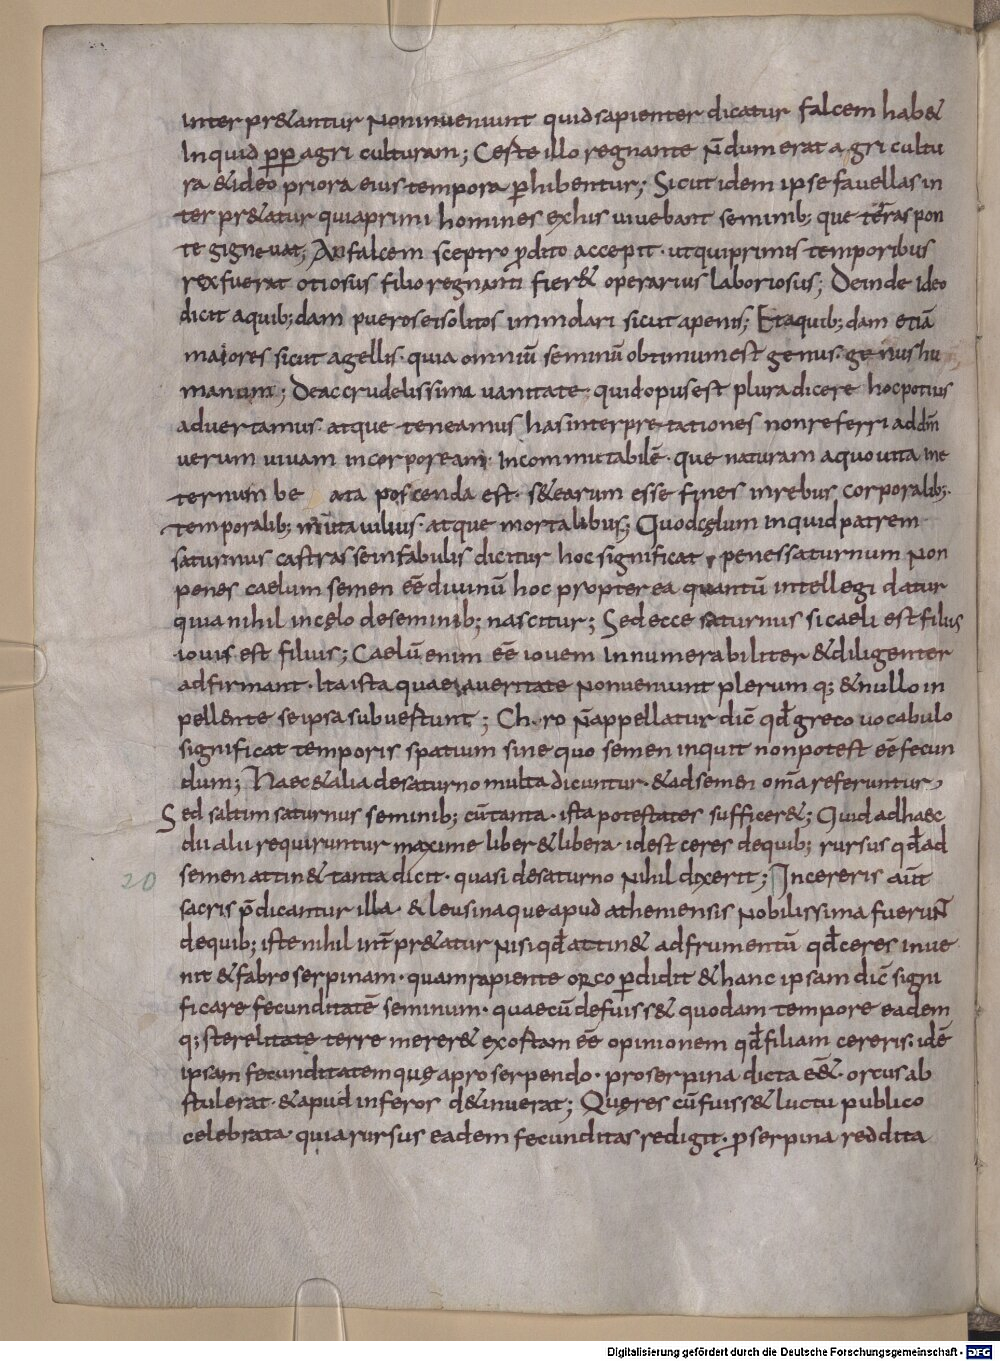 interpr&antur Noninveniunt quid sapienter dicatur falcem hab&
Inquid ꝓp agri culturam; Certe illo regnante n̄dum erat agri cultu
ra & ideo priora eius tempora ꝑhibentur; Sicut idem ipse favellas in
terpr&atur quia primi homines ex his vivebant seminib; que terras pon
te gignebat; An falcem sceptro ꝑdito accepit · ut qui primis temporibus
rex fuerat otiosus filio regnanti fier& operarius laboriosus; Deinde ideo
dicit a quib;dam pueros ei solitos immolari sicut a penis; Et a quib;dam etiā
maiores sicut a gellis · quia omniū seminū obtimum est genus · genus hu
manum; De ac crudelissima vanitate · quid opus est plura dicere hoc potius
advertamus atque teneamus has interpretationes non referri ad dm̄
verum vivam incorpoream incommutabilē · que naturam a quo vita ine
ternum be ata poscenda est · s& earum esse fines in rebus corporalib;
temporalib; mutavilius atque mortalibus; Quod cęlum inquid patrem
saturnus castras se in fabulis dicitur hoc significat penes saturnum Non
penes caelum semen eē divinū hoc propterea quantū intellegi datur
quia nihil in cęlo de seminib; nascitur; Sed ecce saturnus si caeli est filius
iovis est filius; Caelū enim eē iovem innumerabiliter & diligenter
adfirmant · Ita ista quae a veritate Non veniunt plerumq; & nullo in
pellente se ipsa subvertunt; Ch·ro n̄ appellatur dic̄ qđ greco vocabulo
significat temporis spatium sine quo semen inquit non potest eē fecun
dum; Haec & alia de saturno multa dicuntur · & ad semen om̄a referuntur
Sed saltim saturnus seminib; cū tanta · ista potestates sufficer&; Quid ad haec
dii alii requiruntur maxime liber & libera · id est ceres de quib; rursus qđ ad
semen attin& tanta dicit · quasi de saturno Nihil dixerit; In cereris aūt
20
sacris p̄dicantur illa · & leusina que apud atheniensis Nobilissima fuerunt
de quib; iste nihil int̄pr&atur Nisi qđ attin& ad frumentū qđ ceres inve
nit & fabro serpinam · quam rapiente orco ꝑdidit & hanc ipsam dic̄ signi
ficare fecunditatē seminum · quae cū defuiss& quodam tempore eadem
q; sterelitate terre merer& exostam eē opinionem qđ filiam cereris · idē
ipsam fecunditatem quę a proserpendo · proserpina dicta eē& · orcus ab
stulerat · & apud inferos d&inuerat; Quę res cū fuiss& luctu publico
celebrata · quia rursus eadem fecunditas redigit · ꝑserpina reddita